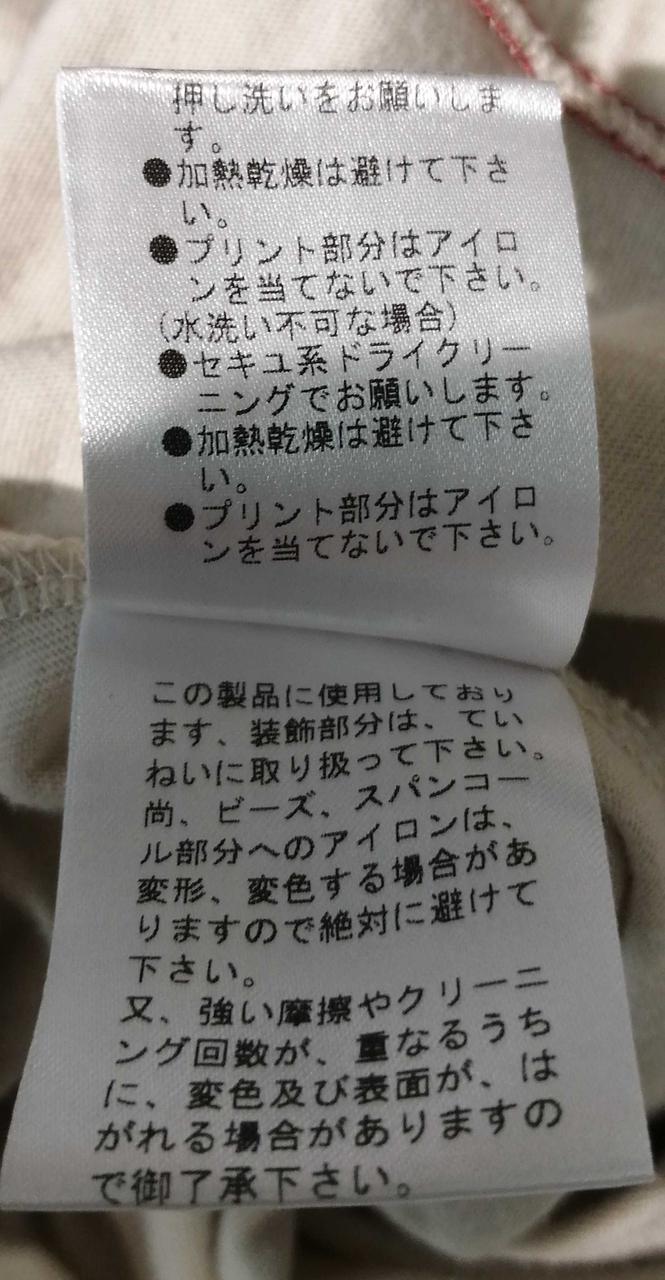 押し洗いをお願いしま
す。
●加熱乾燥は避けて下さ
い。
●プリント部分はアイロ
ンを当てないで下さい。
(水洗い不可な場合)
●セキユ系ドライクリー
ニングでお願いします。
●加熱乾燥は避けて下さ
い。
●プリント部分はアイロ
ンを当てないで下さい。
この製品に使用しており
ます、装飾部分は、てい
ねいに取り扱って下さい。
尚、ビーズ、スパンコー
ル部分へのアイロンは、
変形、変色する場合があ
りますので絶対に避けて
下さい。
又、強い摩擦やクリーニ
ング回数が、重なるうち
に、変色及び表面が、は
がれる場合がありますの
で御了承下さい。